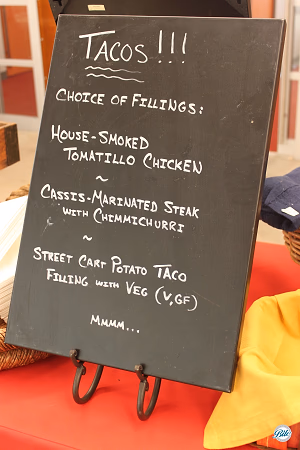 TACOS!!!
CHOICE OF FILLINGS:
HOUSE-SMOKED
TOMATILLO CHICKEN
~
CASSIS-MARINATED STEAK
WITH CHIMMICHURRI
~
STREET CART POTATO TACO
FILLING WITH VEG (V,GF)
MMMM...
Bite